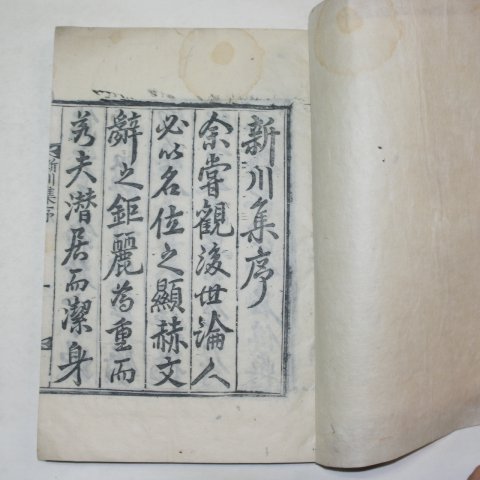 新川集序
余嘗觀後世論人
必以名位之顯赫文
辭之鉅麗爲重而
若夫潛居而潔身
新川集序